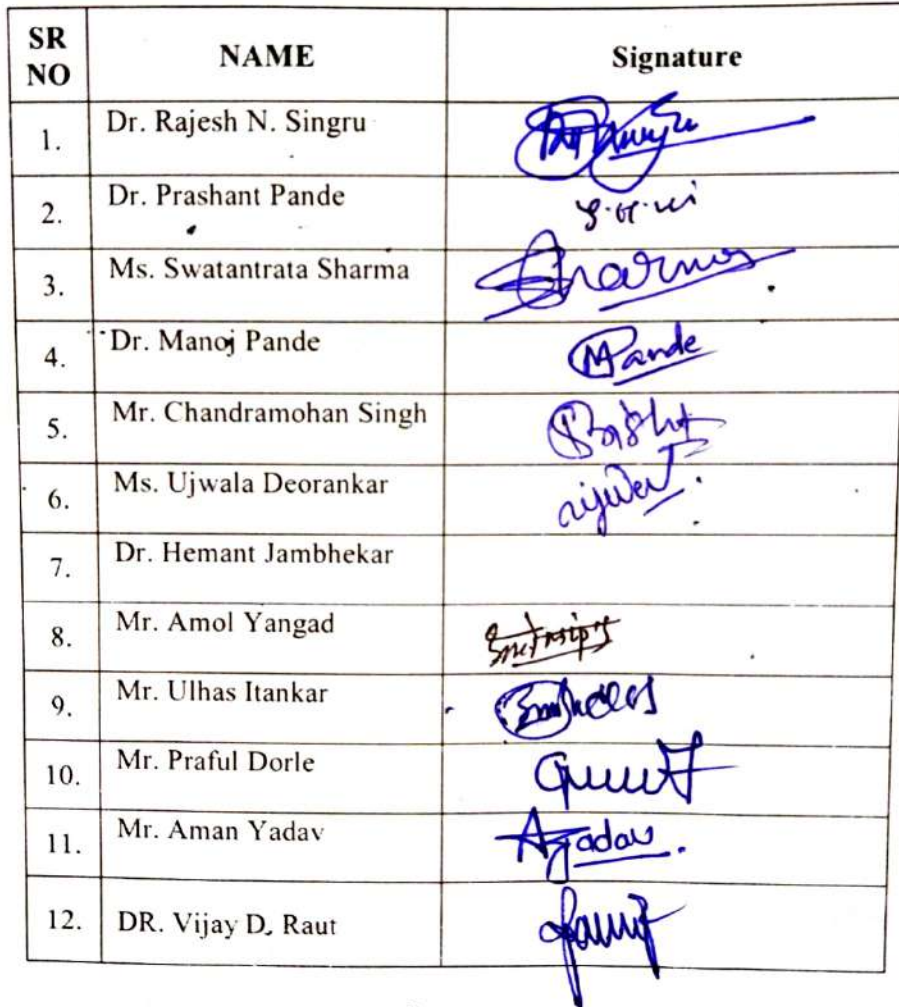 SR NO NAME Signature
1. Dr. Rajesh N. Singru
2. Dr. Prashant Pande
3. Ms. Swatantrata Sharma Sharma
4. Dr. Manoj Pande MPande
5. Mr. Chandramohan Singh
6. Ms. Ujwala Deorankar
7. Dr. Hemant Jambhekar
8. Mr. Amol Yangad
9. Mr. Ulhas Itankar
10. Mr. Praful Dorle
11. Mr. Aman Yadav AYadav.
12. DR. Vijay D. Raut